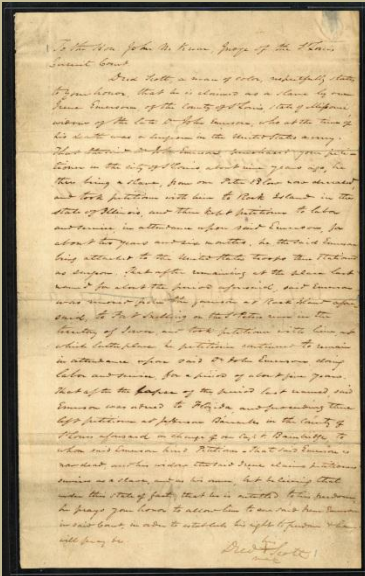 To the Hon. John M. Krum, Judge of the St Louis
Circuit Court
Dred Scott, a man of color, respectfully states
to your honor, that he is claimed as a slave by one
Irene Emerson of the County of St Louis State of Missouri
widow of the late Dr John Emerson, who at the time of
his death was a surgeon in the United States army.
That the said Dr John Emerson purchased your peti-
tioner in the city of St Louis about nine years ago, he
then being a slave, from one Peter Blow now deceased,
and took petitioner with him to Rock Island in the
State of Illinois, and then kept petitioner to labor
and service in attendance upon said Emerson, for
about two years and six months, he the said Emerson
being attached to the United States troops then stationed
as surgeon. That after remaining at the place last
named for about the period aforesaid, said Emerson
was removed from the garrison at Rock Island afore
said, to Fort Snelling on the St Peters river in the
territory of Iowa, and took petitioner with him, at
which latter place he petitioner continued to remain
in attendance upon said Dr John Emerson doing
labor and service for a period of about five years.
that after the lapse of the period last named said
Emerson was ordered to Florida, and proceeding there
left petitioner at Jefferson Barracks in the County of
St Louis aforesaid in charge of one Capt. Bainbridge, to
whom said Emerson hired Petitioner that said Emerson is
now dead, and his widow the said Irene claims petitioners
services as a slave, and as his owner, but believing that
under this state of facts, that he is entitled to his freedom,
he prays your honor to allow him to sue said Irene Emerson
in said Court, in order to establish his right to freedom & he
will pray &c
his
Dred Scott